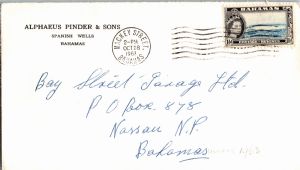 ALPHAEUS PINDER & SONS
SPANISH WELLS
BAHAMAS
MACKEY STREET,
2-PM
OCT 18
1963
BAHAMAS
BAHAMAS
Bay Street Garage Ltd.
P O Box 878
Nassau N.P.
Bahamas